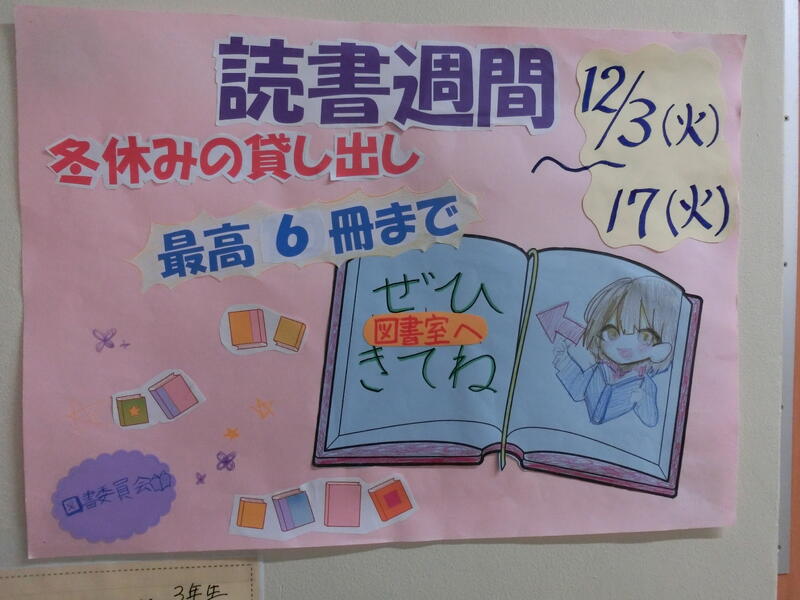 読書週間
12/3(火)
～
17(火)
冬休みの貸し出し
最高6冊まで
ぜひ
図書室へ
きてね
図書委員会
3年生